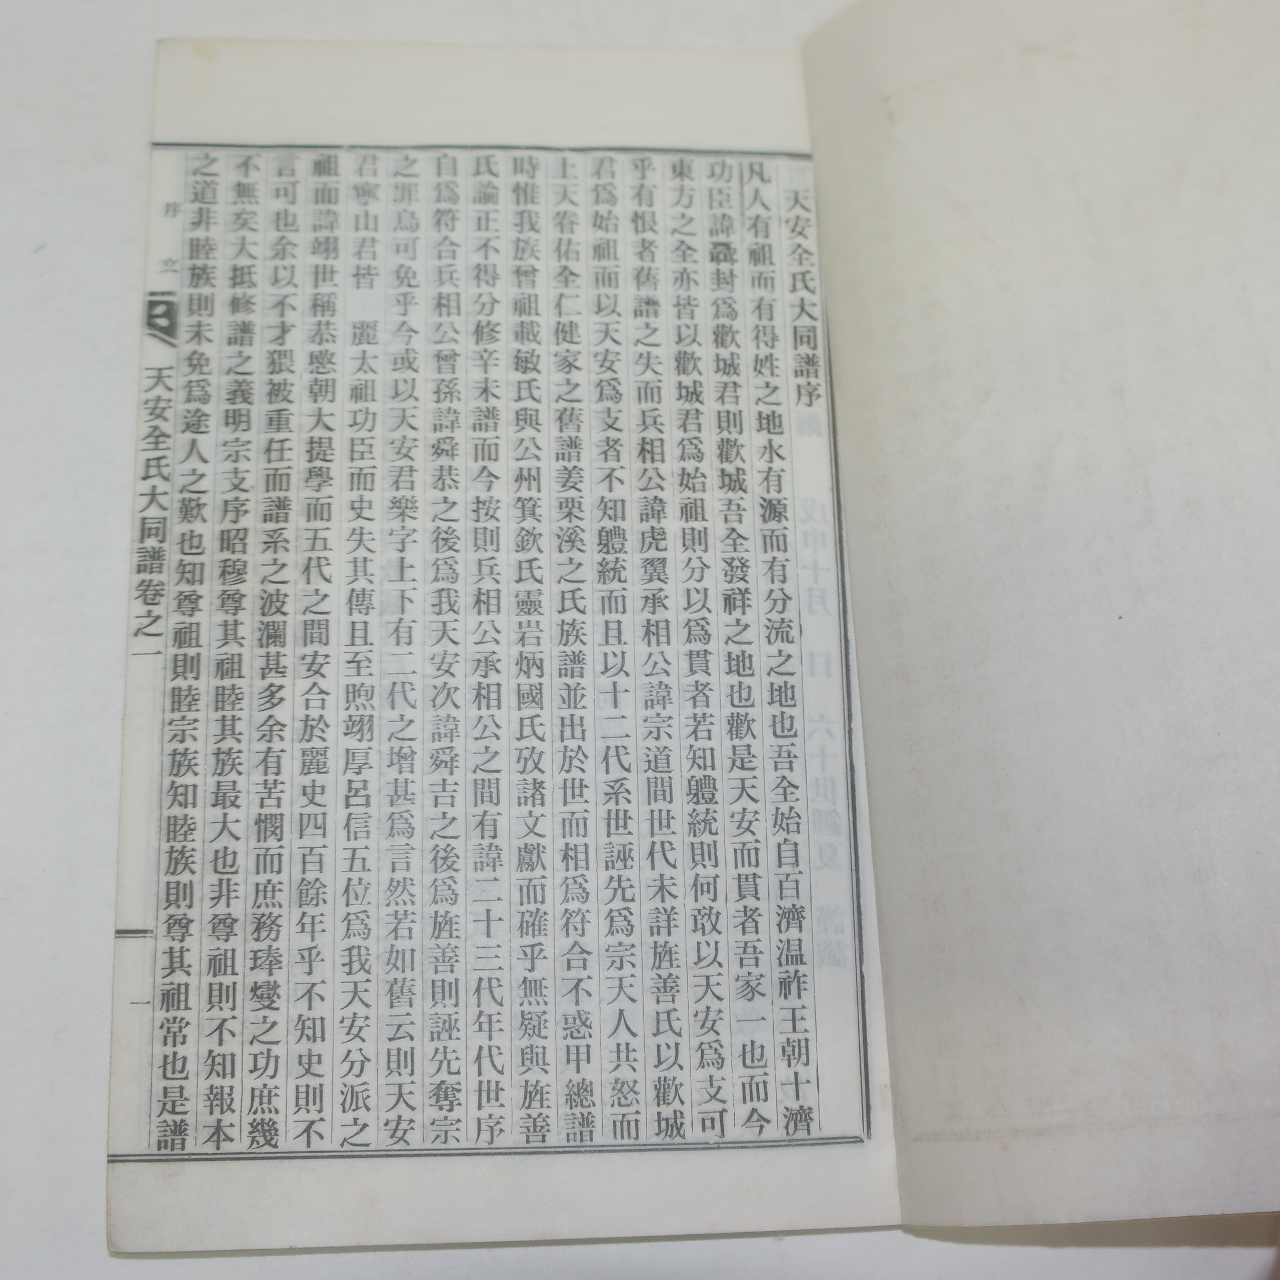 天安全氏大同譜序
凡人有祖而有得姓之地水有源而有分流之地也吾全始自百濟温祚王朝十濟
功臣諱聶封爲歡城君則歡城吾全發祥之地也歡是天安而貫者吾家一也而今
東方之全亦皆以歡城君爲始祖則分以爲貫者若知軆統則何敢以天安爲支可
乎有恨者舊譜之失而兵相公諱虎翼承相公諱宗道間世代未詳旌善氏以歡城
君爲始祖而以天安爲支者不知軆統而且以十二代系世誣先爲宗天人共怒而
上天眷佑全仁健家之舊譜姜栗溪之氏族譜並出於世而相爲符合不惑甲總譜
時惟我族曾祖載敏氏與公州箕欽氏靈岩炳國氏攷諸文獻而確乎無疑與旌善
氏論正不得分修辛未譜而今按則兵相公承相公之間有諱二十三代年代世序
自爲符合兵相公曾孫諱舜恭之後爲我天安次諱舜吉之後爲旌善則誣先奪宗
之罪烏可免乎今或以天安君樂字上下有二代之增甚爲言然若如舊云則天安
君寧山君皆　麗太祖功臣而史失其傳且至煦翊厚呂信五位爲我天安分派之
祖而諱翊世稱恭愍朝大提學而五代之間安合於麗史四百餘年乎不知史則不
言可也余以不才猥被重任而譜系之波瀾甚多余有苦憫而庶務琫燮之功庶幾
不無矣大抵修譜之義明宗支序昭穆尊其祖睦其族最大也非尊祖則不知報本
之道非睦族則未免爲途人之歎也知尊祖則睦宗族知睦族則尊其祖常也是譜
序文
天安全氏大同譜卷之一
一